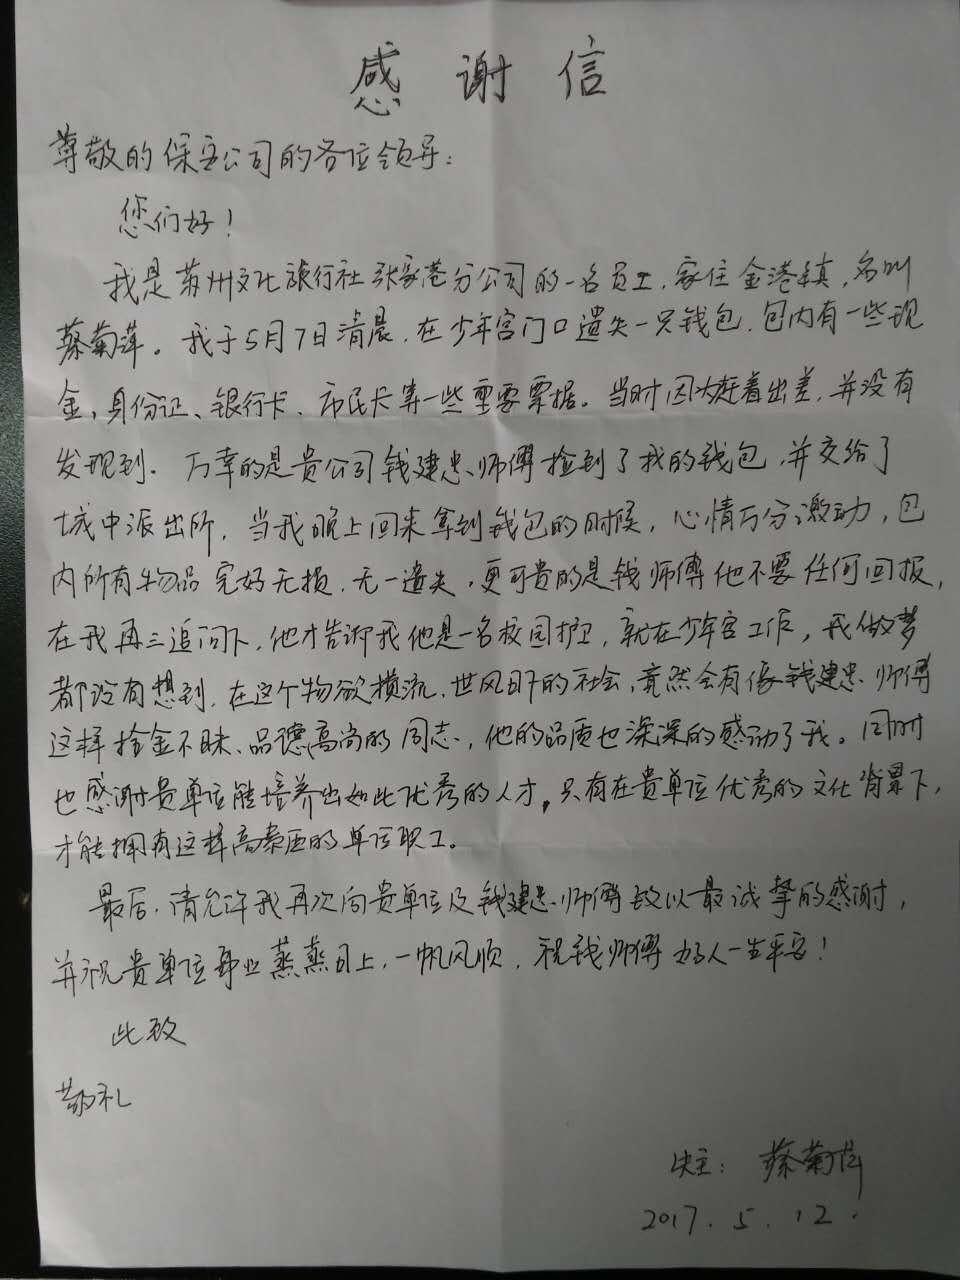 感谢信
尊敬的保安公司的各位领导:
您们好!
我是苏州文化旅行社张家港分公司的一名员工,家住金港镇,名叫
蔡菊萍。我于5月7日清晨,在少年宫门口遗失一只钱包,包内有一些现
金,身份证、银行卡、市民卡等一些重要票据。当时因为赶着出差,并没有
发现到。万幸的是贵公司钱建忠师傅捡到了我的钱包,并交给了
城中派出所,当我晚上回来拿到钱包的时候,心情万分激动,包
内所有物品完好无损,无一遗失,更可贵的是钱师傅他不要任何回报,
在我再三追问下,他才告诉我他是一名校园护卫,就在少年宫工作,我做梦
都没有想到,在这个物欲横流、世风日下的社会,竟然会有像钱建忠师傅
这样拾金不昧、品德高尚的同志,他的品质也深深的感动了我。同时
也感谢贵单位能培养出如此优秀的人才,只有在贵单位优秀的文化背景下,
才能拥有这样高素质的单位职工。
最后,请允许我再次向贵单位及钱建忠师傅致以最诚挚的感谢,
并祝贵单位事业蒸蒸日上,一帆风顺,祝钱师傅好人一生平安!
此致
敬礼
失主:蔡菊萍
2017.5.12.